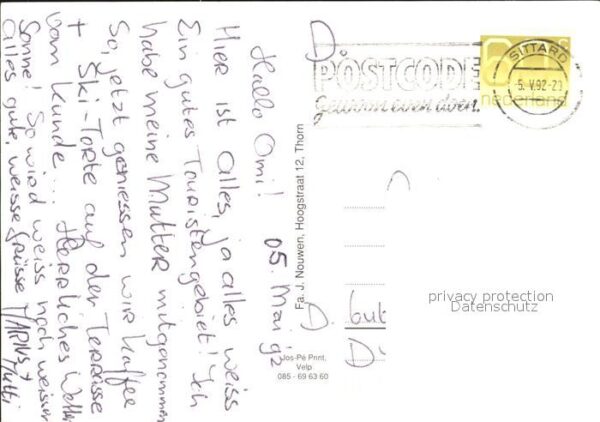 Hallo Omi! 05. Mai 92
Hier ist alles, ja alles weiss
Ein gutes Touristengebiet! Ich
habe meine Mutter mitgenommen
So, jetzt geniessen wir Kaffee
+ Ski-Torte auf der Terrasse
vom Kunde... Herrliches Wetter
Sonne! So wird weiss noch weisser
alles gute, weisse Grüsse
Mutti
Fa. J. Nouwen, Hoogstraat 12, Thorn
Jos-Pé Print,
Velp
085 - 69 63 60
POSTCODE
gewoon even doen.
SITTARD
5.V.92-20
nederland
D.
D.
privacy protection
Datenschutz